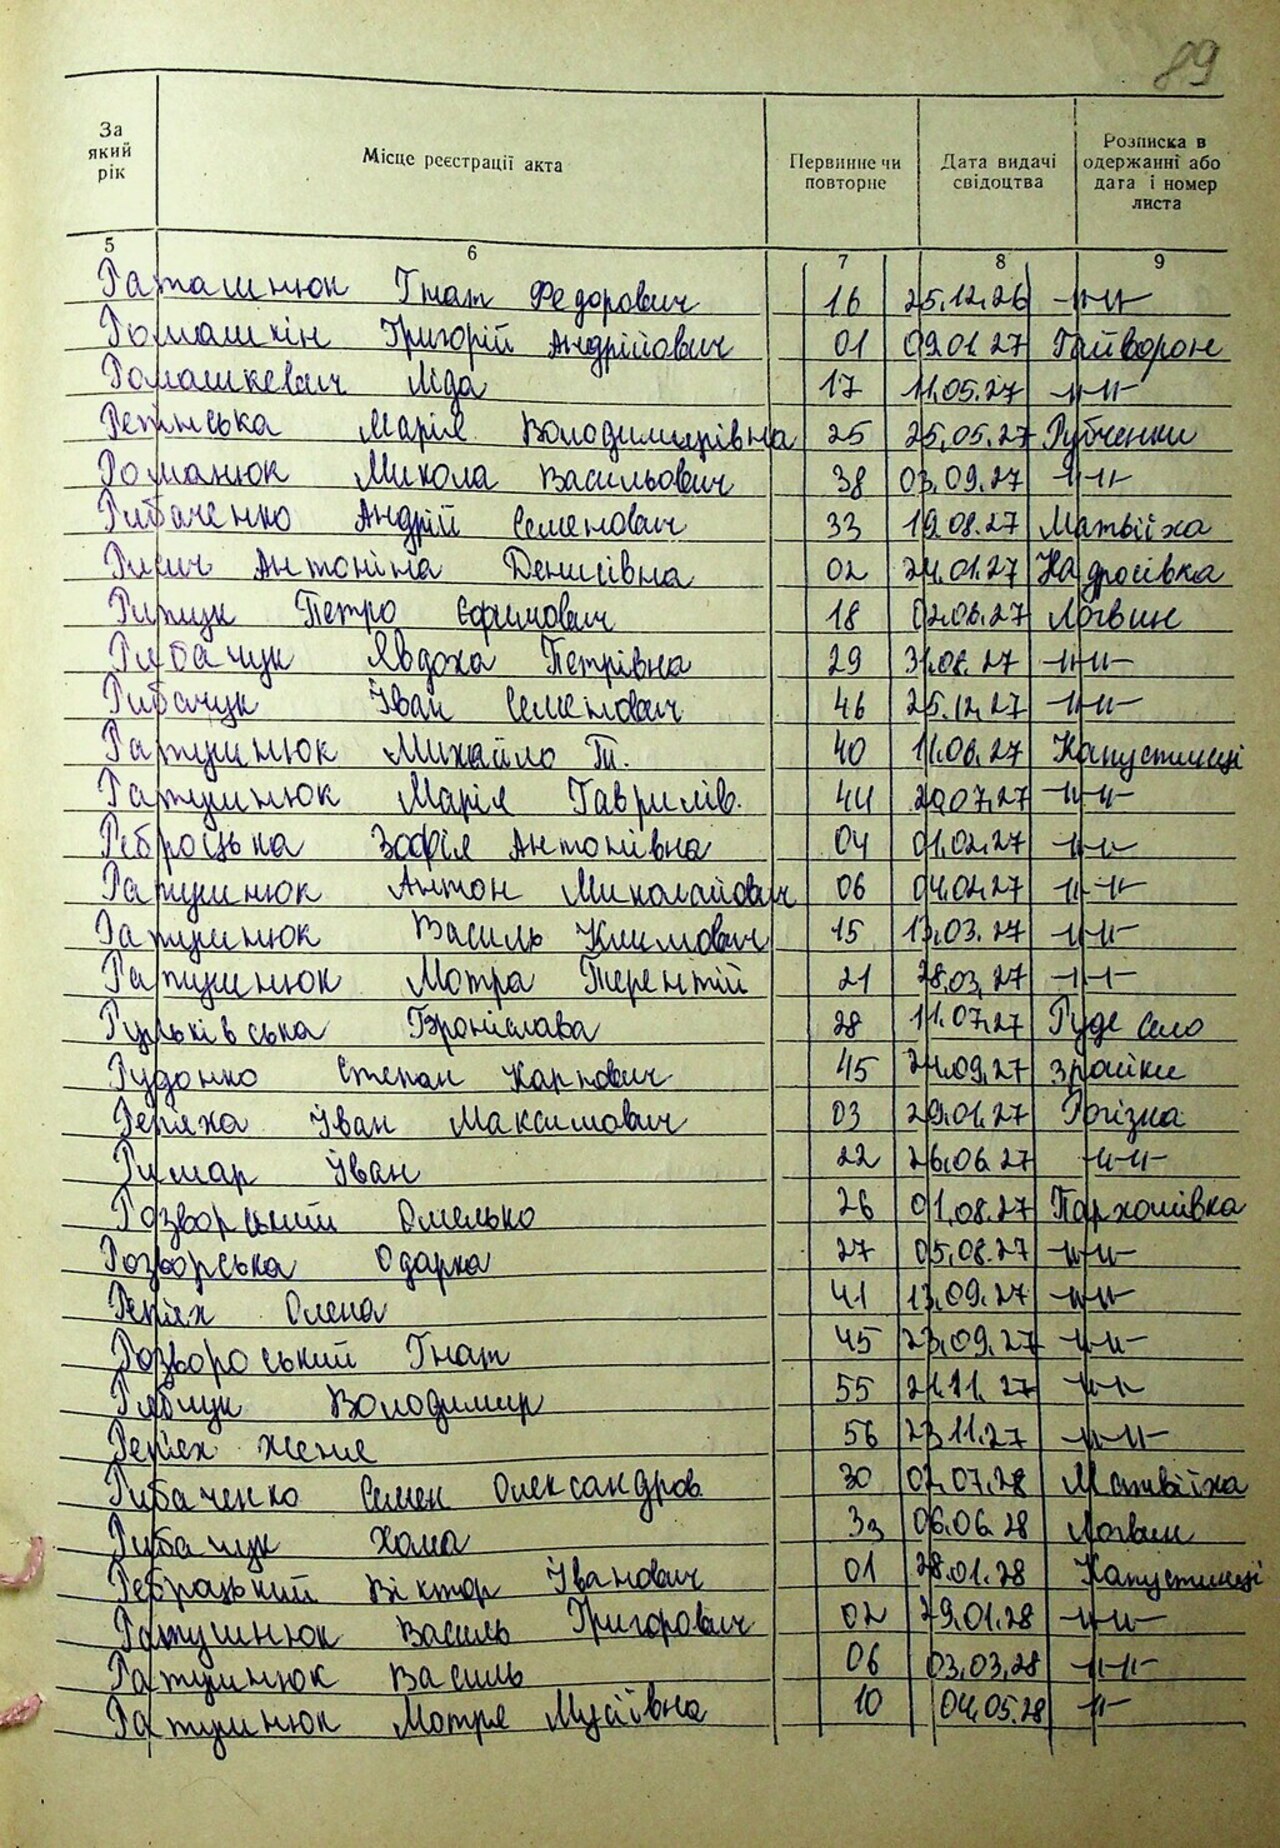 89
За який рік
Місце реєстрації акта
Первинне чи повторне
Дата видачі свідоцтва
Розписка в одержанні або дата і номер листа
5 6 7 8 9
Раташнюк Гнат Федорович 16 25.12.26 -"-"-
Ромашкін Григорій Андрійович 01 09.01.27 Гайворон
Ромашкевич Ліда 17 11.05.27 -"-"-
Марія Володимирівна 25 25.05.27 Рубченки
Романюк Микола Васильович 38 03.09.27 -"-"-
Рибаченко Андрій Семенович 33 19.08.27 Матвіїха
Антоніна Денисівна 02 24.01.27 Надросівка
Петро Єфимович 18 02.06.27 Логвин
Рибачук Явдоха Петрівна 29 31.08.27 -"-"-
Рибачук Іван Семенович 46 25.12.27 -"-"-
Ратушнюк Михайло Т. 40 11.06.27 Капустинці
Ратушнюк Марія Гаврилів. 44 20.07.27 -"-"-
Реброцька Зофія Антонівна 04 01.02.27 -"-"-
Ратушнюк Антон Миколайович 06 04.02.27 -"-"-
Ратушнюк Василь Климович 15 13.03.27 -"-"-
Ратушнюк Мотра Терентій 21 28.03.27 -"-"-
Броніслава 28 11.07.27 Руде село
Рудонко Степан Карпович 45 24.09.27 Зрайки
Реп'яха Іван Максимович 03 29.01.27 Рогізна
Римар Іван 22 26.06.27 -"-"-
Розворський Омелько 26 01.08.27 Пархомівка
Розворська Одарка 27 05.08.27 -"-"-
Реп'ях Олена 41 13.09.27 -"-"-
Розвороський Гнат 45 23.09.27 -"-"-
Рябчук Володимир 55 21.11.27 -"-"-
Реп'ях Женя 56 23.11.27 -"-"-
Рибаченко Семен Олександров. 30 02.07.28 Матвіїха
Рибачук Хома 33 06.06.28 Логвин
Ребрацький Віктор Іванович 01 28.01.28 Капустинці
Ратушнюк Василь Григорович 02 29.01.28 -"-"-
Ратушнюк Василь 06 03.03.28 -"-"-
Ратушнюк Мотря Мусіївна 10 04.05.28 -"-